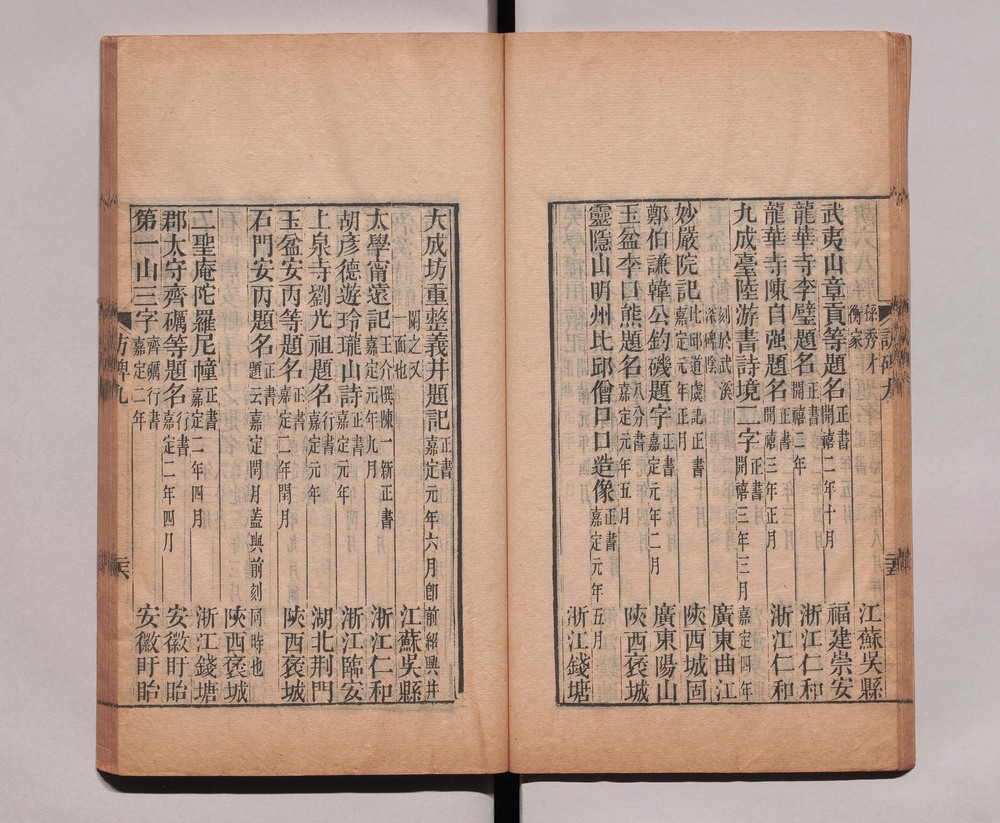 訪碑九
孫秀才衡家 江蘇吳縣
武夷山章貢等題名 正書開禧二年十月 福建崇安
龍華寺李璧題名 正書開禧二年 浙江仁和
龍華寺陳自强題名 正書開禧三年正月 浙江仁和
九成臺陸游書詩境二字 正書開禧三年三月嘉定四年
刻於武溪深碑陰 廣東曲江
妙嚴院記 比邱道虔記正書嘉定元年正月 陝西城固
鄭伯謙韓公釣磯題字 正書嘉定元年二月 廣東陽山
玉盆李口熊題名 八分書嘉定元年五月 陝西褒城
靈隱山明州比邱僧日口造像 正書嘉定元年五月
浙江錢塘
大成坊重整義井題記 正書嘉定元年六月卽前紹興井
闌之又一面也 江蘇吳縣
太學甯遠記 王介撰陳一新正書嘉定元年九月 浙江仁和
胡彥德遊玲瓏山詩 正書嘉定元年 浙江臨安
上泉寺劉光祖題名 行書嘉定元年 湖北荆門
玉盆安丙等題名 正書嘉定二年閏月 陝西褒城
石門安丙題名 正書題云嘉定閏月蓋與前刻同時也
陝西褒城
二聖庵陀羅尼幢 正書嘉定二年四月 浙江錢塘
郡太守齊礪等題名 行書嘉定二年四月 安徽盱眙
第一山三字 齊礪行書嘉定二年 安徽盱眙
訪碑九